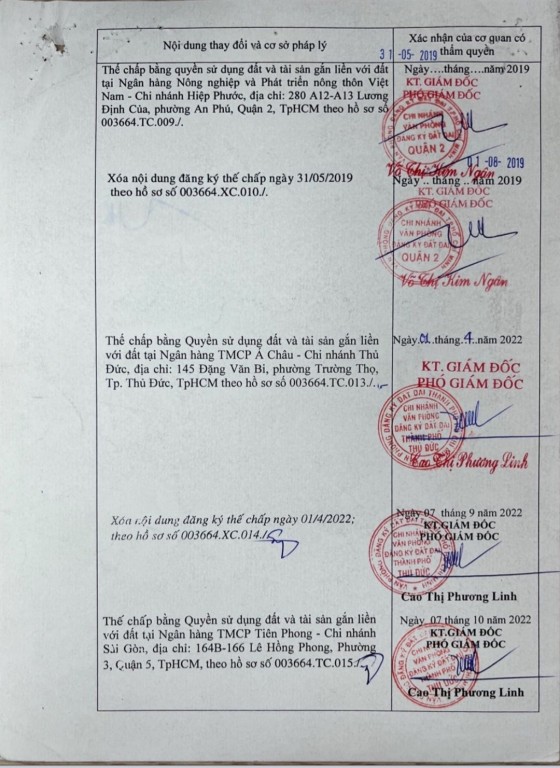 Nội dung thay đổi và cơ sở pháp lý
Xác nhận của cơ quan có
thẩm quyền
31 -05- 2019
Thế chấp bằng quyền sử dụng đất và tài sản gắn liền với đất
tại Ngân hàng Nông nghiệp và Phát triển nông thôn Việt
Nam - Chi nhánh Hiệp Phước, địa chỉ: 280 A12-A13 Lương
Định Của, phường An Phú, Quận 2, TpHCM theo hồ sơ số
003664.TC.009./.
Ngày....tháng....năm 2019
KT. GIÁM ĐỐC
PHÓ GIÁM ĐỐC
CHI NHÁNH
VĂN PHÒNG
ĐĂNG KÝ ĐẤT ĐAI
QUẬN 2
Võ Thị Kim Ngân
01 -08- 2019
Xóa nội dung đăng ký thế chấp ngày 31/05/2019
theo hồ sơ số 003664.XC.010./.
Ngày .. tháng .. năm 2019
KT. GIÁM ĐỐC
PHÓ GIÁM ĐỐC
CHI NHÁNH
VĂN PHÒNG
ĐĂNG KÝ ĐẤT ĐAI
QUẬN 2
Võ Thị Kim Ngân
Thế chấp bằng Quyền sử dụng đất và tài sản gắn liền
với đất tại Ngân hàng TMCP Á Châu - Chi nhánh Thủ
Đức, địa chỉ: 145 Đặng Văn Bi, phường Trường Thọ,
Tp. Thủ Đức, TpHCM theo hồ sơ số 003664.TC.013./.
Ngày.01.tháng.4..năm 2022
KT. GIÁM ĐỐC
PHÓ GIÁM ĐỐC
CHI NHÁNH
VĂN PHÒNG
ĐĂNG KÝ ĐẤT ĐAI
THÀNH PHỐ
THỦ ĐỨC
Cao Thị Phương Linh
Xóa nội dung đăng ký thế chấp ngày 01/4/2022;
theo hồ sơ số 003664.XC.014./.
Ngày 07 tháng 9 năm 2022
KT.GIÁM ĐỐC
PHÓ GIÁM ĐỐC
CHI NHÁNH
VĂN PHÒNG
ĐĂNG KÝ ĐẤT ĐAI
THÀNH PHỐ
THỦ ĐỨC
Cao Thị Phương Linh
Thế chấp bằng Quyền sử dụng đất và tài sản gắn liền
với đất tại Ngân hàng TMCP Tiên Phong - Chi nhánh
Sài Gòn, địa chỉ: 164B-166 Lê Hồng Phong, Phường
3, Quận 5, TpHCM, theo hồ sơ số 003664.TC.015./.
Ngày 07 tháng 10 năm 2022
KT.GIÁM ĐỐC
PHÓ GIÁM ĐỐC
CHI NHÁNH
VĂN PHÒNG
ĐĂNG KÝ ĐẤT ĐAI
THÀNH PHỐ
THỦ ĐỨC
Cao Thị Phương Linh